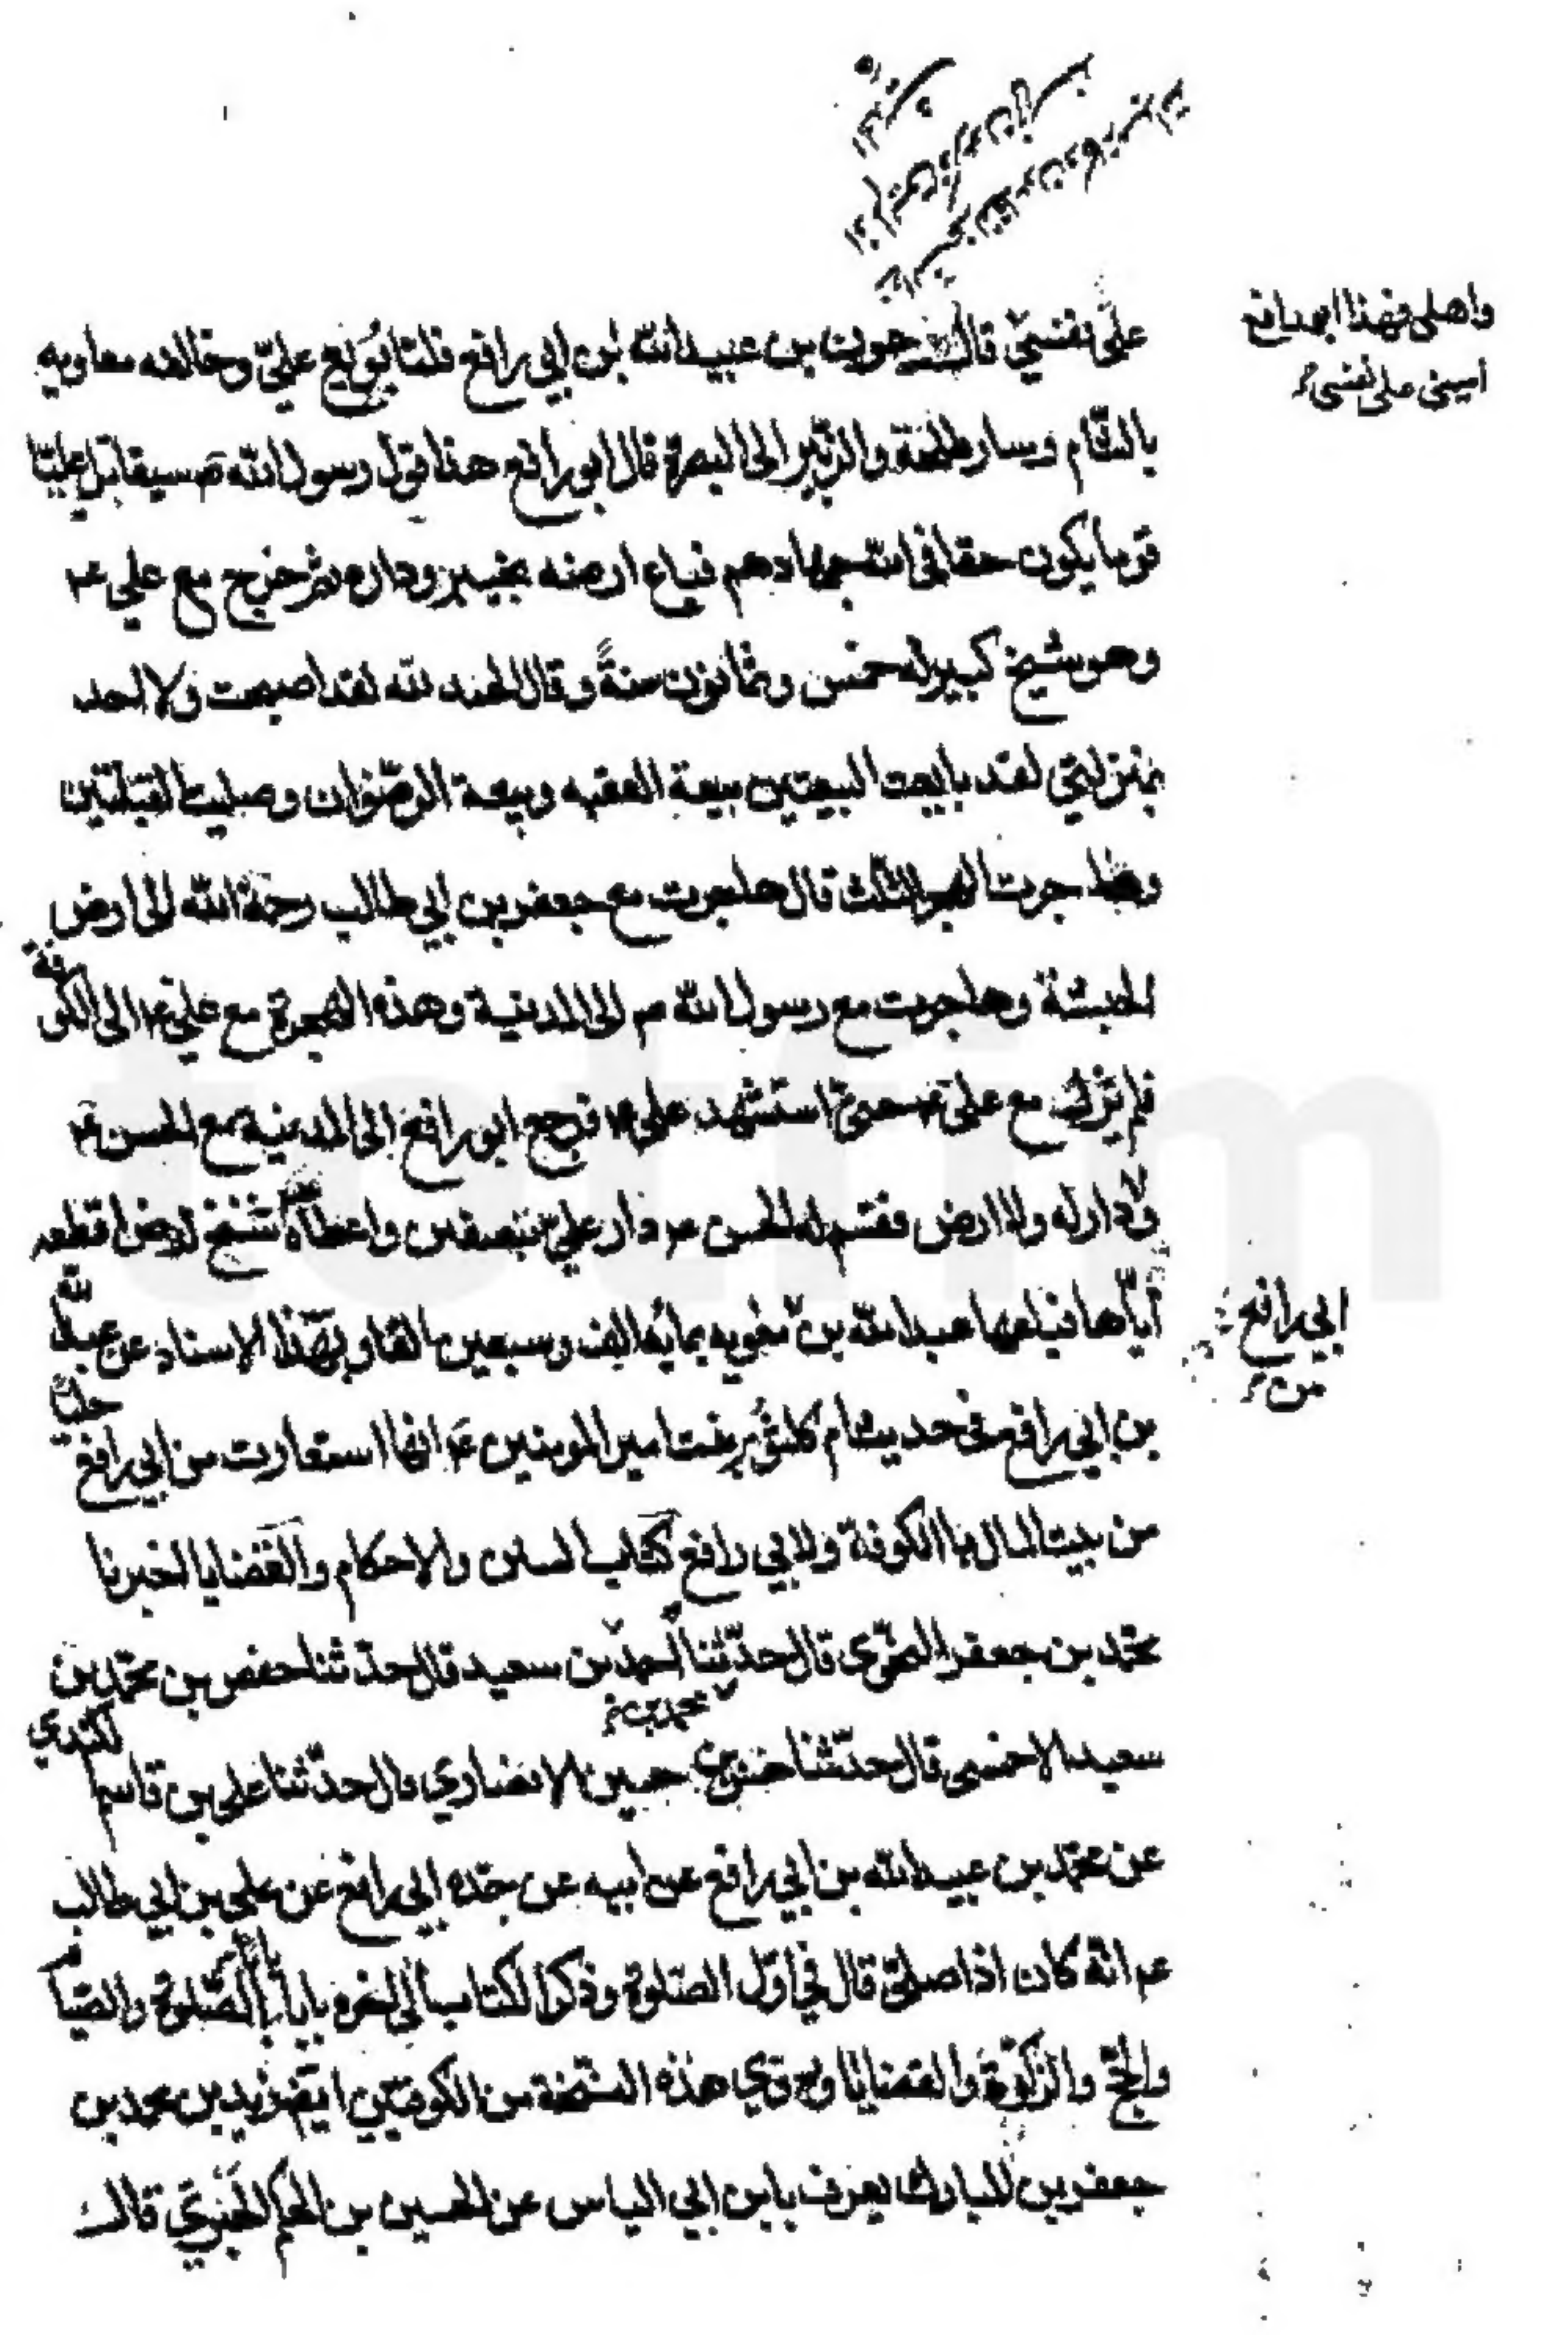 واهلى فهذا ابو رافع
اميني على نفسي
على نفسي قال عون بن عبيد الله بن ابي رافع فلما بويع علي وخالفه معاويه
بالشام وسار طلحة والزبير الى البصرة قال ابو رافع هذا قول رسول الله ص سيقاتل عليا
قوم يكون حقا في الله جهادهم فباع ارضه بخيبر وداره ثم خرج مع علي ع
وهو شيخ كبير له خمس وثمانون سنة وقال الحمد لله لقد اصبحت ولا احد
بمنزلتي لقد بايعت البيعتين بيعة العقبه وبيعة الرضوان وصليت القبلتين
وهاجرت الهجر الثلث قال هاجرت مع جعفر بن ابي طالب رحمة الله الى ارض
الحبشة وهاجرت مع رسول الله ص الى المدينة وهذه الهجرة مع علي ع الى الكوفة
فلم يزل مع علي ع حتى استشهد علي ع فرجع ابو رافع الى المدينة مع الحسن ع
ولا دار له ولا ارض فقسم له الحسن ع دار علي ع بنصفين واعطاه ارض اقطعه
اياها فباعها عبيد الله بن معويه بمائه الف وسبعين الفا وبهذا الاسناد عن عبيد الله
ابي رافع
من
بن ابي رافع في حديث ام كلثوم بنت امير المومنين ع انها استعارت من ابي رافع حليا
من بيت المال بالكوفة ولابي رافع كتاب السنن والاحكام والقضايا اخبرنا
محمد بن جعفر النحوي قال حدثنا احمد بن سعيد قال حدثنا حفص بن محمد بن
محمد بن
سعيد الاحمسى قال حدثنا حسين الانصاري قال حدثنا على بن قاسم الكندي
عن محمد بن عبيد الله بن ابي رافع عن ابيه عن جده ابي رافع عن علي بن ابي طالب
ع انه كان اذا صلى قال في اول الصلوة وذكر الكتاب الى اخره بابا بابا الصلوة والصيام
والحج والزكوة والقضايا وروي هذه النسخة من الكوفيين ايضا زيد بن محمد بن
جعفر بن المبارك يعرف بابن ابي الياس عن الحسين بن الحكم الحبري قال